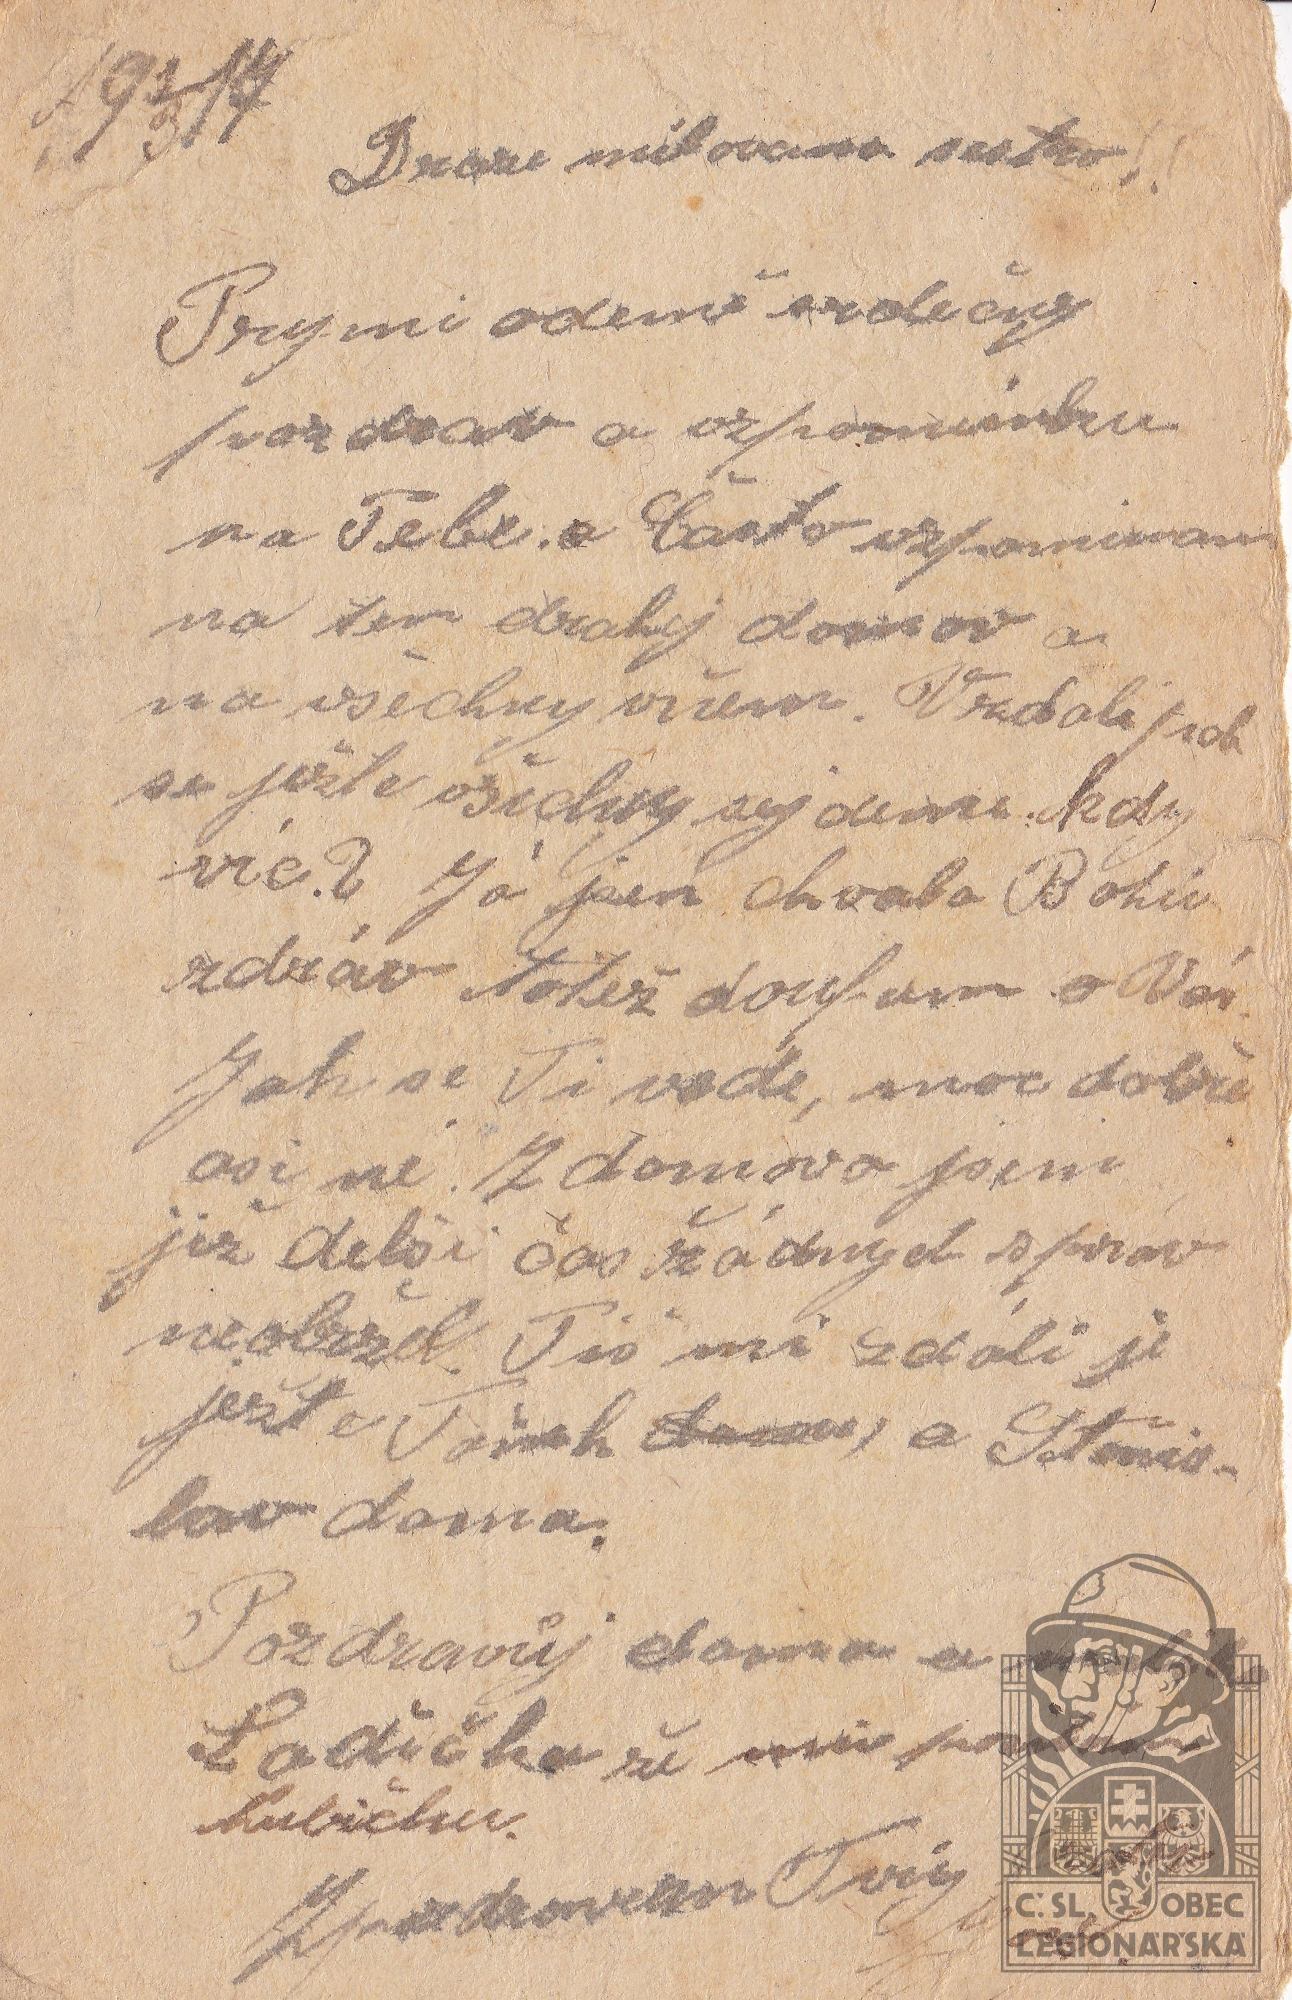 19 3/3 17
Drace milovana sestro!!
Prijmi odemě srdečný
pozdrav a vzpomínku
na Tebe. a často vzpominam
na ten drahý domov a
na všechny včem. Vzdali pak
se ješte všichny sejdeme. kdy
víc.? Já jsen chvala Bohu
zdráv totéž doufam o Vás.
Jak se Ti vede, moc dobře
asi né. Z domova jsem
již delši čas žádnych zprav
neobržel. Tiš mi zdáli je
ješte Toník doma, a Stanis-
lav doma.
Pozdravůj doma a
Ladička že mi
hubičku.
Z pozdravem Tvůj
Č:SL. OBEC
LEGIONÁŘSKÁ